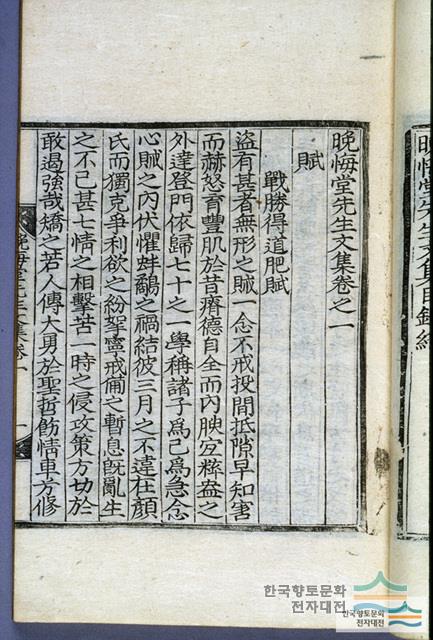 晩悔堂先生文集目錄終
晩悔堂先生文集卷之一
賦
戰勝得道肥賦
盗有甚者無形之賊一念不戒投間抵隙早知害
而赫怒育豊肌於昔瘠德自全而內腴宜粹盎之
外達登門依歸七十之一學稱諸子爲己爲急念
心賊之內伏懼蚌鷸之禍結彼三月之不違在顔
氏而獨克爭利欲之紛挐寧戒俻之暫息旣亂生
之不已甚七情之相擊苦一時之侵攻策方切於
敢遏強哉矯之若人傳大勇於聖哲飭情車方修
晩悔堂先生文集卷一
한국향토문화
전자대전
한국향토문화
전자대전